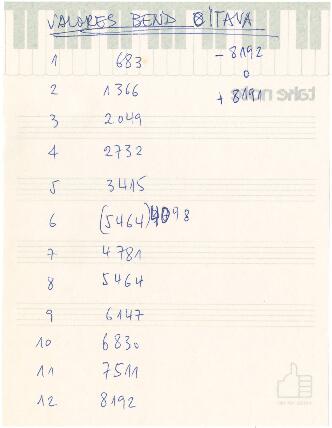 VALORES BEND 8ITAVA
- 8192
1 683
0
2 1366
+ 8191
take note
3 2049
4 2732
5 3415
6 (5464) 4098
7 4781
8 5464
9 6147
10 6830
11 7511
12 8192